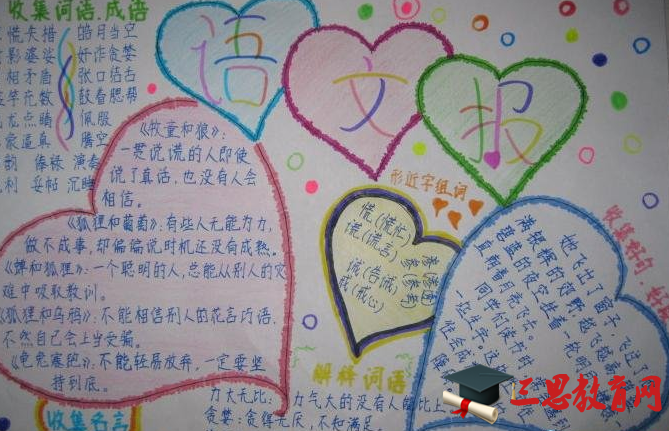 收集词语.成语
慌失措 皓月当空
影婆娑 奸诈贪婪
相矛盾 张口结舌
竽充数 鼓着腮帮
龙点睛 佩服
豪逼真 腾空
韵 俸禄 演奏
利 妥帖 沉睡
语文报
《牧童和狼》:
一贯说谎的人即使
说了真话,也没有人会
相信。
《狐狸和葡萄》:有些人无能为力,
做不成事,却偏偏说时机还没有成熟。
《蝉和狐狸》:一个聪明的人,总能从别人的灾
难中吸取教训。
《狐狸和乌鸦》:不能相信别人的花言巧语,
不然自己会上当受骗。
《龟兔赛跑》:不能轻易放弃,一定要坚
持到底。
收集名言
形近字组词
慌(慌忙)
谎(谎言)
诫(告诫)
戒(戒心)
解释词语
力大无比: 力气大的没有人能比上
贪婪:贪得无厌,不知满足。
收集好句.好段
他飞出了窗子,飞过了
满银辉的田野,越飞越高
碧蓝的夜空挂着一轮明
直朝着月亮飞去
三思教育网